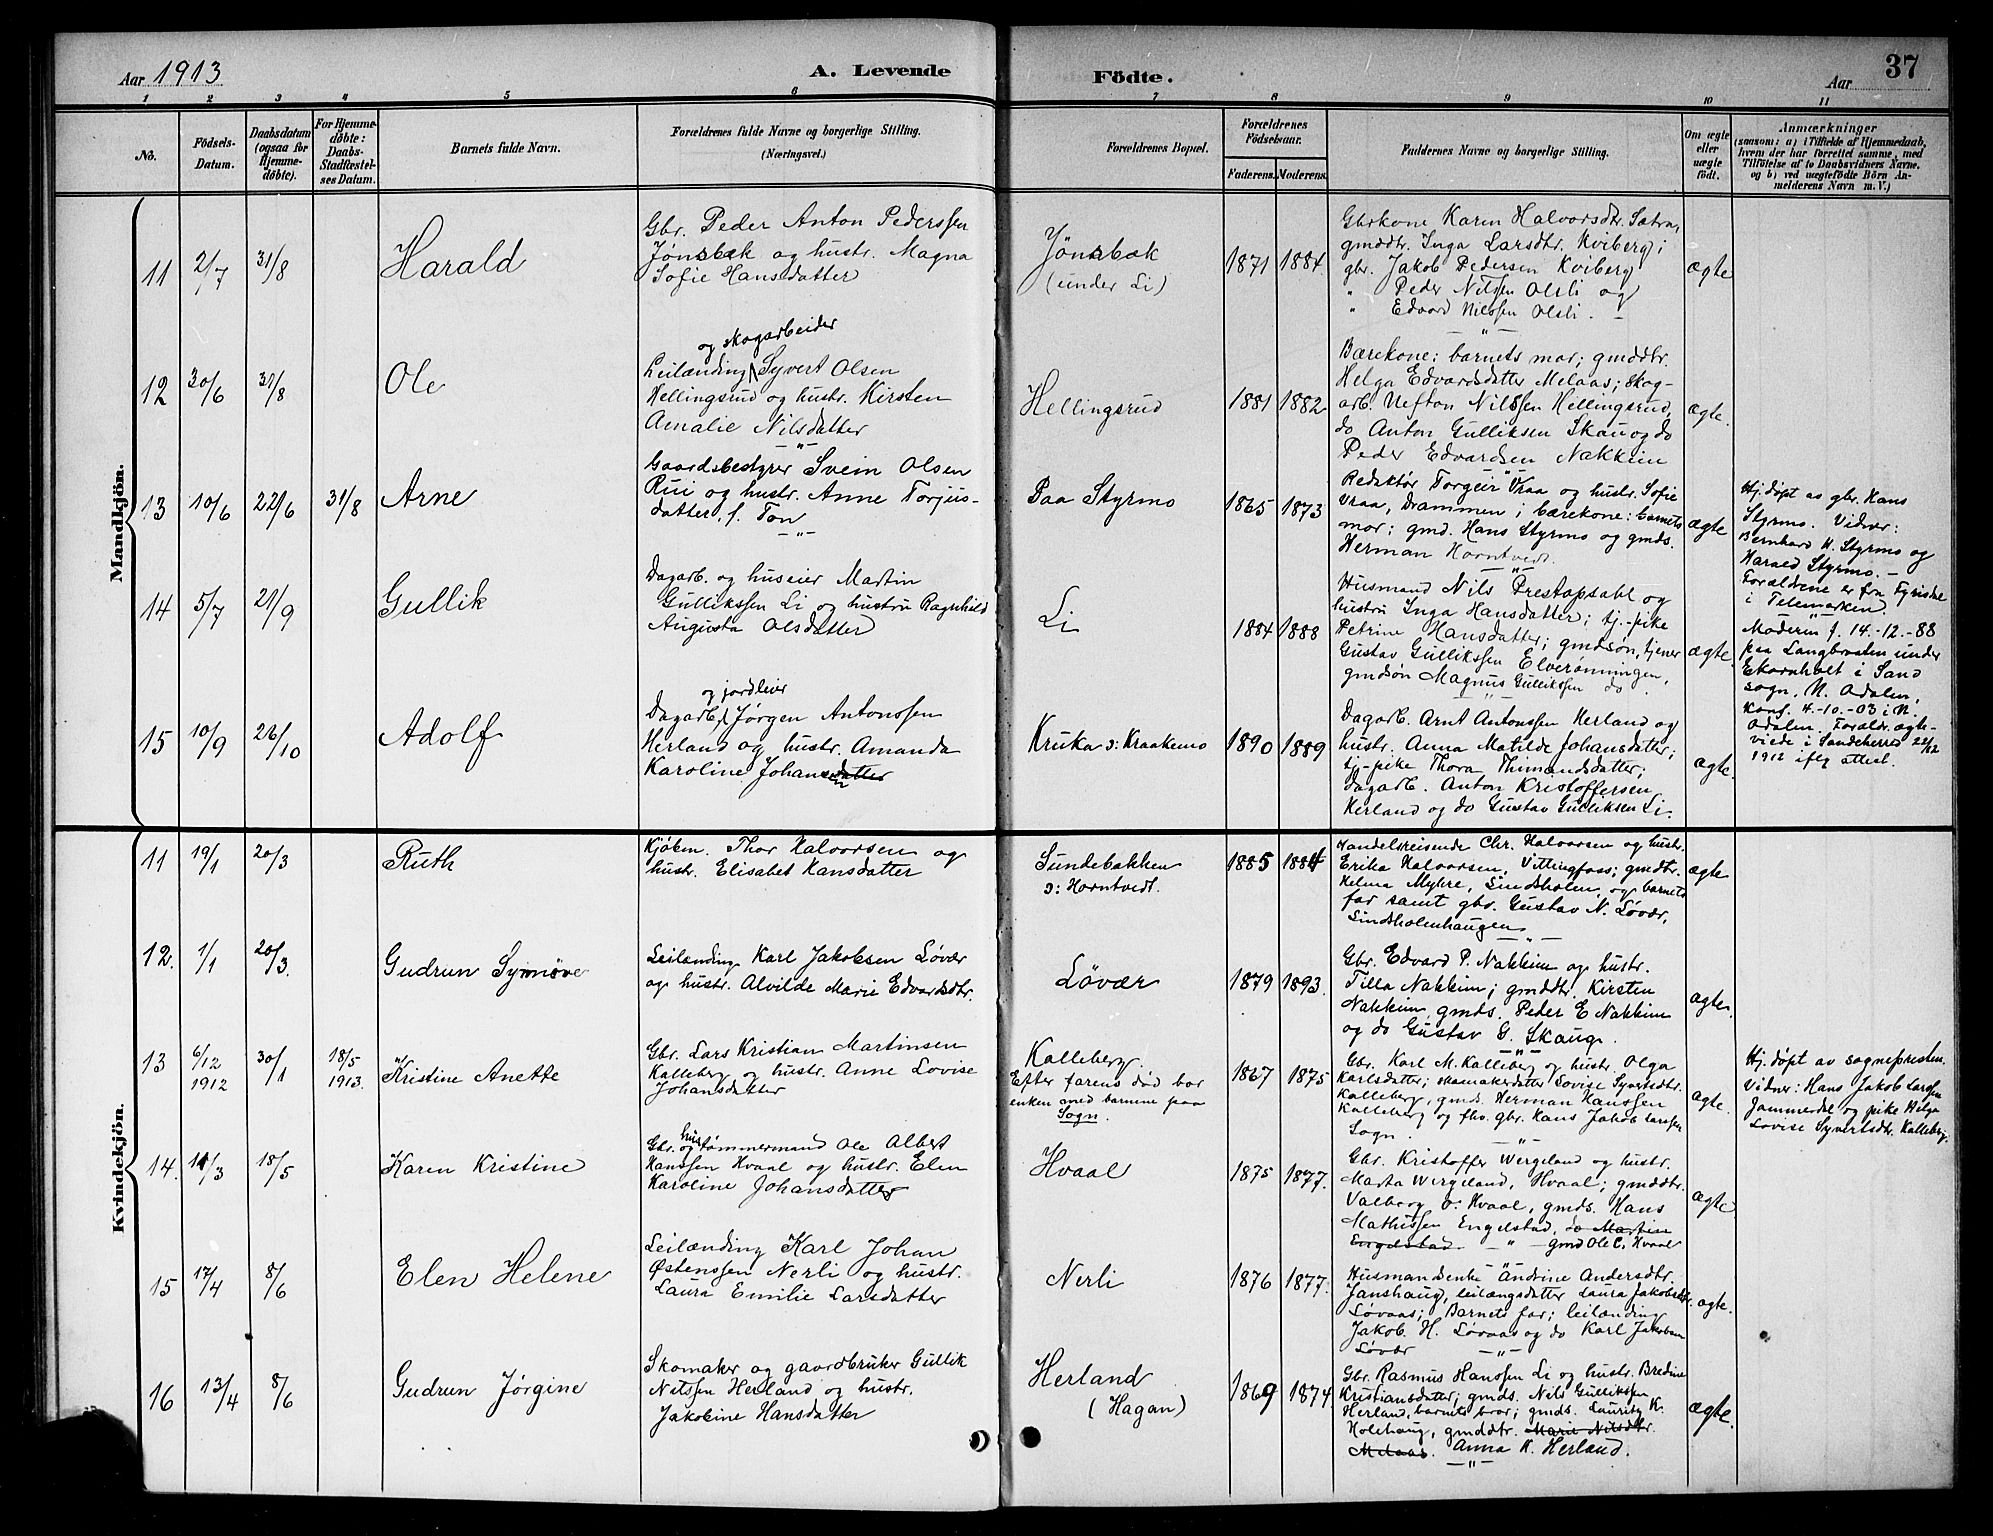 Aar 1913
A. Levende
Födte.
Aar
37
1 2 3 4 5 6 7 8 9 10 11
No.
Födsels-
Datum.
Daabsdatum
(ogsaa for
Hjemme-
döbte).
For Hjemme-
döbte:
Daabs-
Stadfæstel-
ses Datum.
Barnets fulde Navn.
Forældrenes fulde Navne og borgerlige Stilling.
(Næringsvei.)
Forældrenes Bopæl.
Forældrenes
Födselsaar.
Faderens. Moderens.
Faddernes Navne og borgerlige Stilling.
Om ægte
eller
uægte
födt.
Anmærkninger
(saasom: a) i Tilfælde af Hjemmedaab,
hvem der har forrettet samme, med
Tilföielse af to Daabsvidners Navne.
og b) ved uægtefödte Börn An-
melderens Navn m. V.)
Mandkjön.
11 2/7 31/8
Harald
Gbr. Peder Anton Pederssen
Jønsbæk og hustr. Magna
Sofie Hansdatter
Jönsbæk
(under Li)
1871 1884
Gbrkone Karen Halvorsdtr. Sætra,
gmddtr. Inga Larsdtr. Kviberg;
gbr. Jakob Pedersen Kviberg
" Peder Nilssen Olsli og
" Edvard Nilssen Olsli. -
ægte
12 30/6 31/8
Ole
og skogarbeider
Leilænding Syvert Olsen
Hellingsrud og hustr. Kirsten
Amalie Nilsdatter
Hellingsrud
1881 1882
Bærekone: barnets mor; gmddtr.
Helga Edvardsdatter Melaas; skog-
arb. Nefton Nilssen Hellingsrud,
do Anton Gulliksen Skau og do
Peder Edvardsen Nakkim
ægte.
13 10/6 22/6 31/8
Arne
Gaardsbestyrer Svein Olsen
Rui og hustr. Anne Torjus-
datter, f. Ton
Paa Styrmo
1865 1873
Redaktør Torgeir Vraa og hustr. Sofie
Vraa, Drammen; bærekone: barnets
mor; gmd. Hans Styrmo og gmds.
Herman Horntvedt.
ægte
Hj.døpt av gbr. Hans
Styrmo. Vidner:
Bernhard H. Styrmo og
Harald Styrmo. -
Forældrene er fra Fyrisdal
i Telemarken.
14 5/7 21/9
Gullik
Dagarb. og huseier Martin
Gullikssen Li og hustru Ragnhild
Augusta Olsdatter
Li
1884 1888
Husmand Nils Prestopsahl og
hustru Inga Hansdatter; tj.-pike
Petrine Hansdatter; gmdsøn, tjener
Gustav Gullikssen Elverønningen,
gmdsøn Magnus Gulliksen do.
ægte
Moderen f. 14.-12.-88
paa Langbraaten under
Ekornholt i Sand
sogn, N. Odalen,
konf. 4.-10.-03 i N.
Odalen. Forældr. ægte-
viede i Sandeherred 22/12
1912 iflg attest.
15 10/9 26/10
Adolf
og jordleier
Dagarb. Jørgen Antonssen
Herland og hustr. Amanda
Karoline Johansdatter
Kruka ɔ: Kraakemo
1890 1889
Dagarb. Arnt Antonssen Herland og
hustr. Anna Matilde Johansdatter;
tj.-pike Thora Thimandsdatter;
dagarb. Anton Kristoffersen
Herland og do Gustav Gulliksen Li.
ægte.
Kvindekjön.
11 19/1 20/3
Ruth
Kjøbm. Thor Halvorsen og
hustr. Elisabet Hansdatter
Sundebakken
ɔ: Horntvedt.
1885 1884
Handelsreisende Chr. Halvorsen og hustr.
Erika Halvorsen, Vittingfoss; gmdtr.
Helma Myhre, Lindsholm, og barnets
far samt gbr. Gustav N. Løvær,
Lindsholmhaugen
ægte
12. 1/1 20/3.
Gudrun Synnöve
Leilænding Karl Jakobsen Løvær
og hustr. Alvilde Marie Edvardsdtr.
Løvær
1879 1893.
Gbr. Edvard P. Nakkim og hustr.
Tilla Nakkim; gmddtr. Kirsten
Nakkim, gmds. Peder E Nakkim
og do Gustav G. Skaug.
ægte.
13 6/12 1912 30/1 18/5 1913.
Kristine Anette
Gbr. Lars Kristian Martinsen
Kalleberg og hustr. Anne Lovise
Johansdatter
Kalleberg.
Efter farens död bor
enken med barnene paa
Sogn.
1867 1875
Gbr. Karl M. Kalleberg og hustr. Olga
Karlsdatter; skomakerdatter Lovise Syvertsdtr.
Kalleberg, gmds. Herman Hanssen
Kalleberg og fhv. gbr. Hans Jakob Larssen
Sogn.
ægte.
Hj. døpt av sognepresten.
Vidner: Hans Jakob Larssen
Jammerdal og pike Helga
Lovise Syvertsdtr. Kalleberg.
14. 11/3 18/5
Karen Kristine
Gbr. og hustømmermand Ole Albert
Hanssen Hvaal og hustr. Elen
Karoline Johansdatter
Hvaal
1875 1877.
Gbr. Kristoffer Wergeland og hustr.
Marta Wergeland, Hvaal; gmddtr.
Valborg O. Hvaal, gmds. Hans
Mathissen Engelstad, do Martin
Engelstad - " - gmd Ole C. Hvaal
ægte
15 17/4 8/6
Elen Helene
Leilænding Karl Johan
Østenssen Nerli og hustr.
Laura Emilie Larsdatter
Nerli
1876 1877.
Husmandsenke Andrine Andersdtr.
Janshaug, leilængsdatter Laura Jakobsdtr.
Løvaas; Barnets far; leilænding
Jakob H. Løvaas og do Karl Jakobsen
Løvær
ægte.
16 13/4 8/6
Gudrun Jørgine
Skomaker og gaardbruker Gullik
Nilssen Herland og hustr.
Jakobine Hansdatter
Herland
(Hagan)
1869 1874.
Gbr. Rasmus Hanssen Li og hustr. Bredine
Kristiansdatter; gmds. Nils Gullikssen
Herland, barnets bror; gmds. Lauritz K.
Holehaug, gmddtr. Marie Nilsdtr.
Melaas. Anna K. Herland.
ægte.